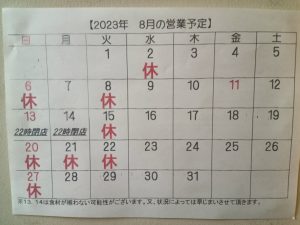 【2023年 8月の営業予定】
日 月 火 水 木 金 土
1 2 3 4 5
休
6 7 8 9 10 11 12
休 休
13 14 15 16 17 18 19
22時閉店 22時閉店 休
20 21 22 23 24 25 26
休 休 休
27 28 29 30 31
休
※13、14は食材が揃わない可能性がございます。又、状況によっては早じまいさせて頂きます。